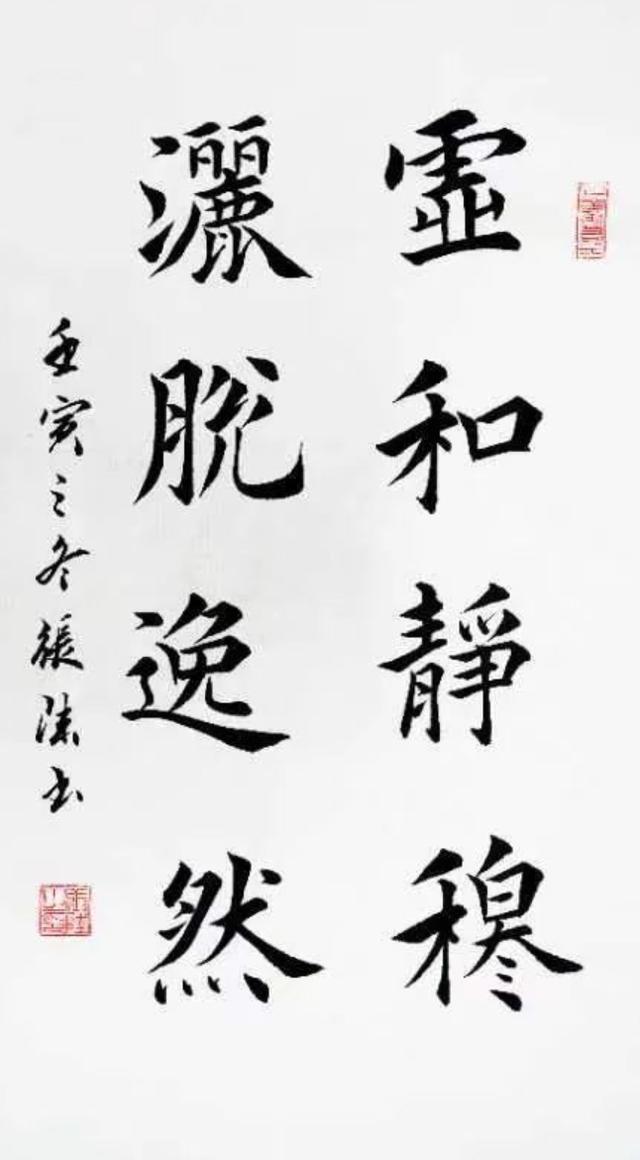 虛和靜穆
灑脫逸然
壬寅之冬張陸書